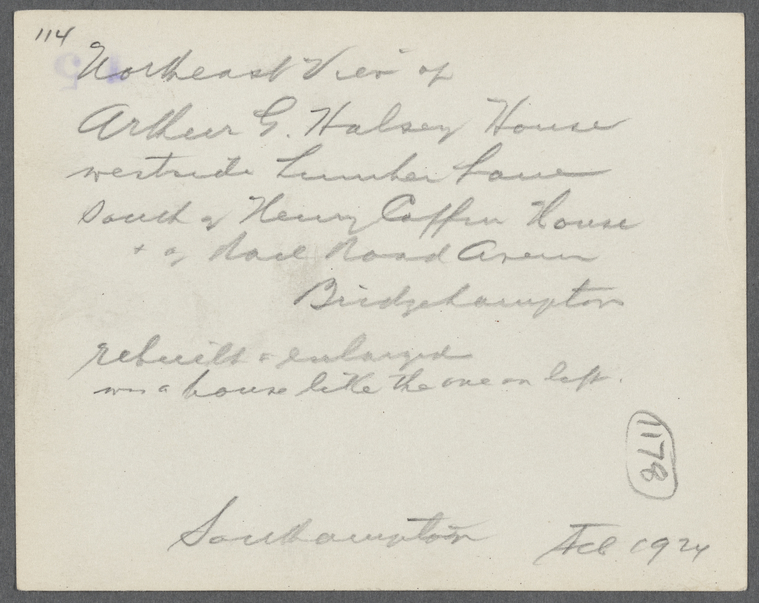 114
Northeast View of
Arthur G. Halsey House
westside Lumber Lane
South of Henry Coffin House
+ of Rail Road Aven
Bridgehampton
rebuilt & enlarged
was a house like the one on left.
1178
Southampton Feb 1924